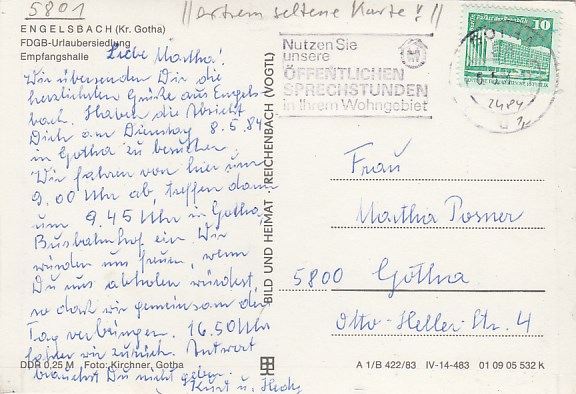 5801
//extrem seltene Karte!//
ENGELSBACH (Kr. Gotha)
FDGB-Urlaubersiedlung
Empfangshalle
Liebe Martha!
Wir übersenden Dir die
herzlichsten Grüße aus Engels-
bach. Haben die Absicht
Dich am Dienstag 8.5.84
in Gotha zu besuchen.
Wir fahren von hier um
9.00 Uhr ab, treffen dann
um 9.45 Uhr in Gotha,
Busbahnhof ein. Wir
würden uns freuen, wenn
Du uns abholen würdest,
so daß wir gemeinsam den
Tag verbringen. 16.50 Uhr
fahren wir zurück. Antwort
brauchst Du nicht geben.
Kurt u.
DDR 0,25 M Foto: Kirchner, Gotha
BILD UND HEIMAT REICHENBACH (VOGTL)
Nutzen Sie
unsere
ÖFFENTLICHEN
SPRECHSTUNDEN
in Ihrem Wohngebiet
10
Frau
Martha Posner
5800 Gotha
Otto-Heller-Str. 4
A 1/B 422/83 IV-14-483 01 09 05 532 K